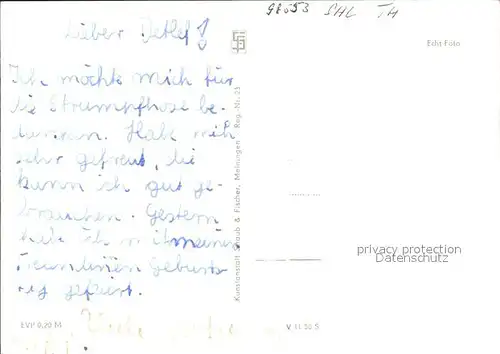 98653 SHL TH
Lieber Detlef!
Echt Foto
Ich möchte mich für
die Strumpfhose be-
danken. Habe mich
sehr gefreut, die
kann ich gut ge-
brauchen. Gestern
habe ich mit meinen
Freundinnen Geburts-
tag gefeiert.
Kunstanstalt Straub & Fischer, Meiningen Reg.-Nr.
privacy protection
Datenschutz
EVP 0,20 M
V 11 50 5